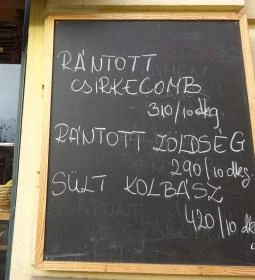 RÁNTOTT
CSIRKECOMB
310/10 dkg.
RÁNTOTT ZÖLDSÉG
290/10 dkg.
SÜLT KOLBÁSZ
420/10 dk